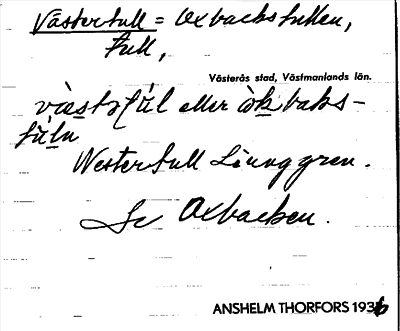 Västertull = Oxbackstullen,
tull,
Västerås stad, Västmanlands län.
västǝṭụ̈l eller òkbaks-
tùln
Westertull Liunggren.
Se Oxbacken.
ANSHELM THORFORS 1936